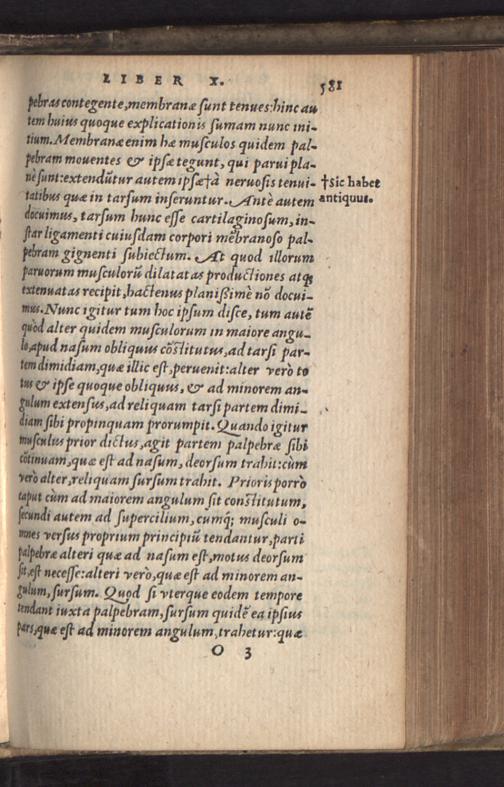 LIBER X. 581
pebras contegente, membranæ sunt tenues: hinc au
tem huius quoque explicationis sumam nunc ini-
tium. Membranæ enim hæ musculos quidem pal-
pebram mouentes & ipsæ tegunt, qui parui pla-
nè sunt: extendũtur autem ipsæ † à neruosis tenui-
tatibus quæ in tarsum inseruntur. Antè autem
docuimus, tarsum hunc esse cartilaginosum, in-
star ligamenti cuiusdam corpori mẽbranoso pal-
pebram gignenti subiectum. At quod illorum
paruorum musculorũ dilatatas productiones atq;
extenuatas recipit, hactenus planißimè nõ docui-
mus. Nunc igitur tum hoc ipsum disce, tum autẽ
quòd alter quidem musculorum in maiore angu-
lo, apud nasum obliquus cõstitutus, ad tarsi par-
tem dimidiam, quæ illic est, peruenit: alter verò to
tus & ipse quoque obliquus, & ad minorem an-
gulum extensus, ad reliquam tarsi partem dimi-
diam sibi propinquam prorumpit. Quando igitur
musculus prior dictus, agit partem palpebræ sibi
cõtinuam, quæ est ad nasum, deorsum trahit: cùm
verò alter, reliquam sursum trahit. Prioris porrò
caput cùm ad maiorem angulum sit constitutum,
secundi autem ad supercilium, cumq; musculi o-
mnes versus proprium principiũ tendantur, parti
palpebræ alteri quæ ad nasum est, motus deorsum
sit, est necesse: alteri verò, quæ est ad minorem an-
gulum, sursum. Quod si vterque eodem tempore
tendant iuxta palpebram, sursum quidẽ ea ipsius
pars, quæ est ad minorem angulum, trahetur: quæ
O 3
†Sic habet
antiquus.